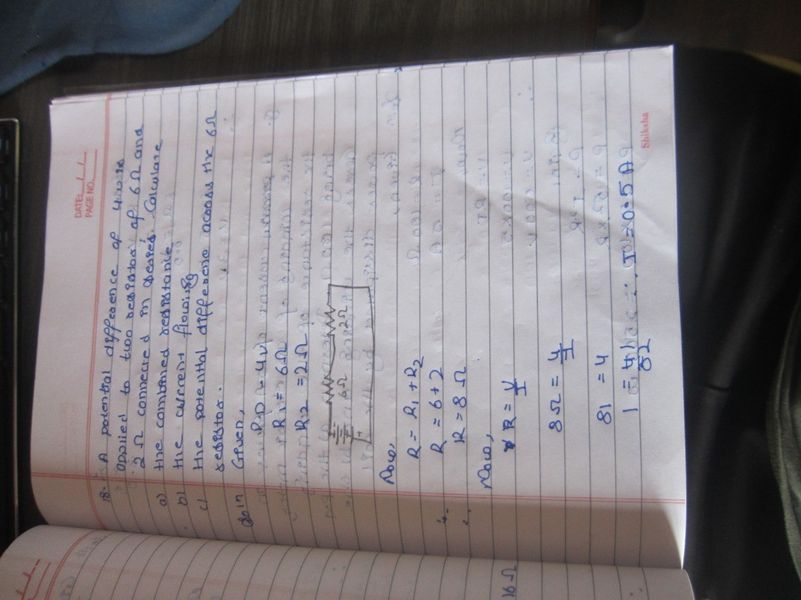 DATE: / /
PAGE NO.
18. A potential difference of 4v is
applied to two resistor of 6Ω and
2Ω connected in series. Calculate
a) the combined resistance
b) the current flowing
c) the potential difference across the 6Ω
resistor.
Soln Given,
P.D = 4v
R1 = 6Ω
R2 = 2Ω
6Ω 2Ω
Now,
R = R1 + R2
∴ R = 6+2
∴ R = 8Ω
Now,
R = V/I
8Ω = 4/I
8I = 4
I = 4/8 ∴ I = 0.5A
16Ω
Shiksha